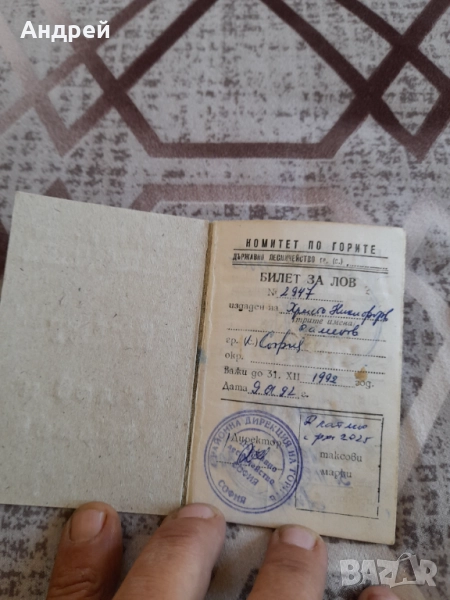 Андрей
КОМИТЕТ ПО ГОРИТЕ
ДЪРЖАВНО ЛЕСНИЧЕЙСТВО гр. (с.)
БИЛЕТ ЗА ЛОВ
№ 2947
издаден на Христо Никифоров
трите имена
гр. (с.) София
окр.
важи до 31. XII 1992 год.
Дата 9.01.92 г.
Директор
ДИРЕКЦИЯ НА ГОРИТЕ
СОФИЯ
лесничейство
СОФИЯ
таксови
марки
BAZAR